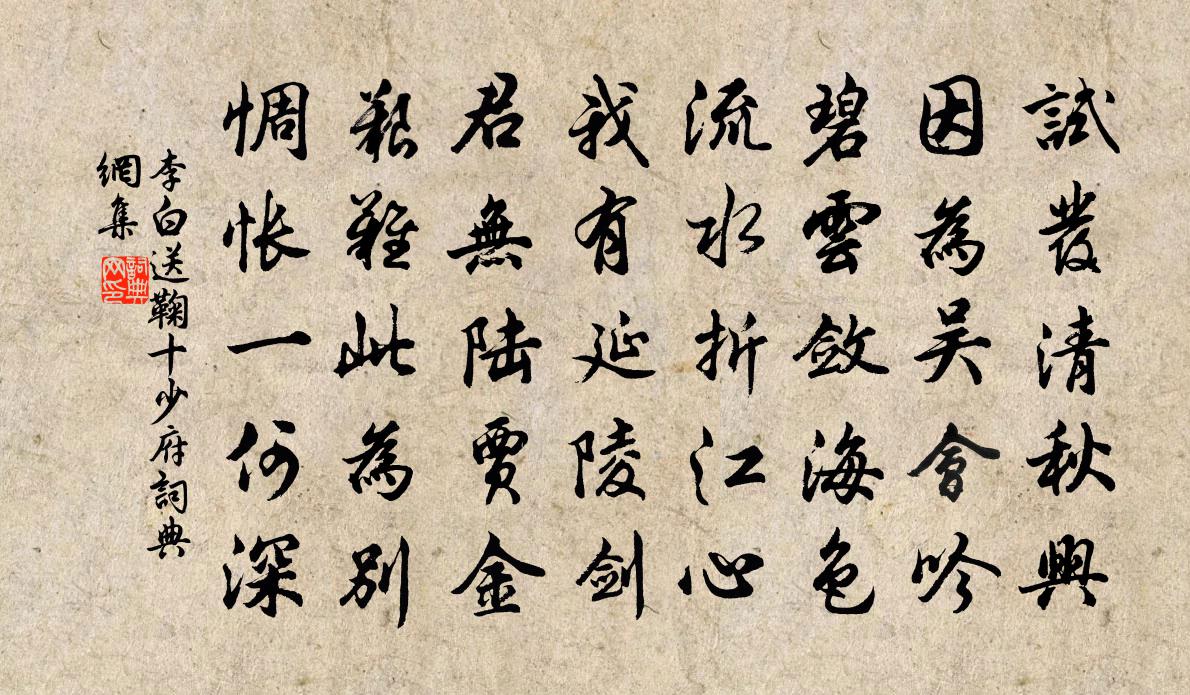 試發清秋興
因為吴會吟
碧雲斂海色
流水折江心
我有延陵劍
君無陸賈金
艱難此為別
惆悵一何深
李白送鞠十少府詞典
網集
詞典
网印